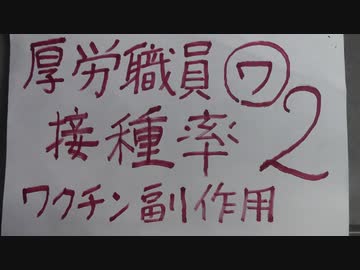 厚労職員㋻
接種率 2
ワクチン副作用